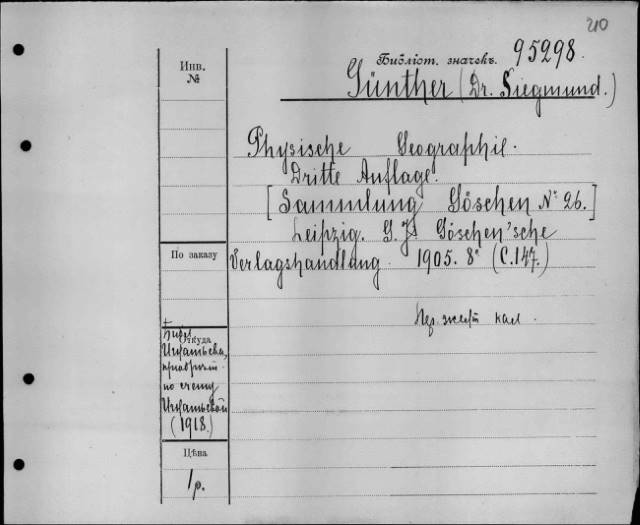 210
Библіот. значекъ. 95298.
Инв.
№
Günther (Dr. Siegmund.)
Physische Geographie.
Dritte Auflage.
[Sammlung Göschen № 26.]
Leipzig. G. J. Göschen'sche
Verlagshandlung. 1905. 8° (С. 147.)
По заказу
кал.
Откуда
Игнатьева,
по счету
Игнатьевой
(1918.)
Цѣна
1 р.